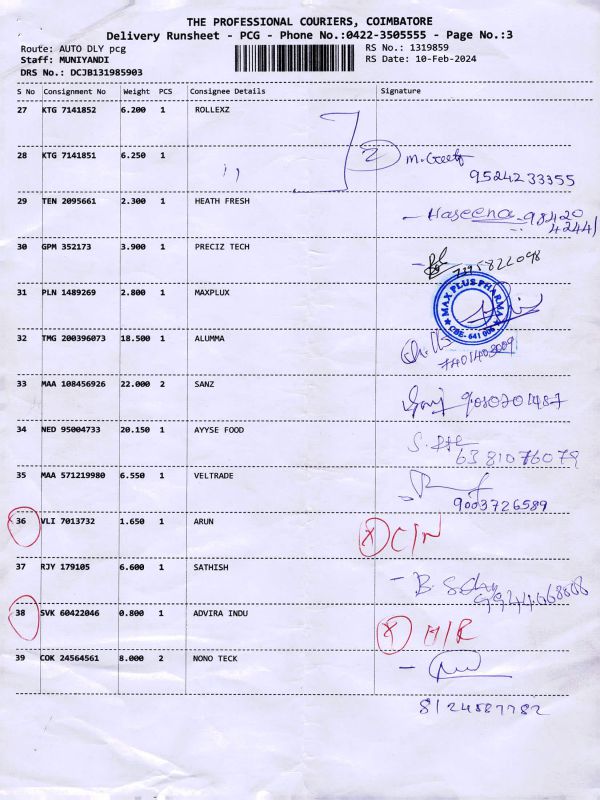 THE PROFESSIONAL COURIERS, COIMBATORE
Delivery Runsheet - PCG - Phone No.:0422-3505555 - Page No.:3
Route: AUTO DLY pcg RS No.: 1319859
Staff: MUNIYANDI RS Date: 10-Feb-2024
DRS No.: DCJB131985903
S No Consignment No Weight PCS Consignee Details Signature
27 KTG 7141852 6.200 1 ROLLEXZ
28 KTG 7141851 6.250 1 11 2 M. Geetf
9524233355
29 TEN 2095661 2.300 1 HEATH FRESH
- Haseena - 98420
42441
30 GPM 352173 3.900 1 PRECIZ TECH
7395822098
31 PLN 1489269 2.800 1 MAXPLUX
MAX PLUS PHARMA
CBE- 641 006
32 TMG 200396073 18.500 1 ALUMMA
33 MAA 108456926 22.000 2 SANZ
9080701487
34 NED 95004733 20.150 1 AYYSE FOOD
6381076079
35 MAA 571219980 6.550 1 VELTRADE
9003726589
36 VLI 7013732 1.650 1 ARUN X C/N
37 RJY 179105 6.600 1 SATHISH
38 SVK 60422046 0.800 1 ADVIRA INDU X H/R
39 COK 24564561 8.000 2 NONO TECK
8124587782